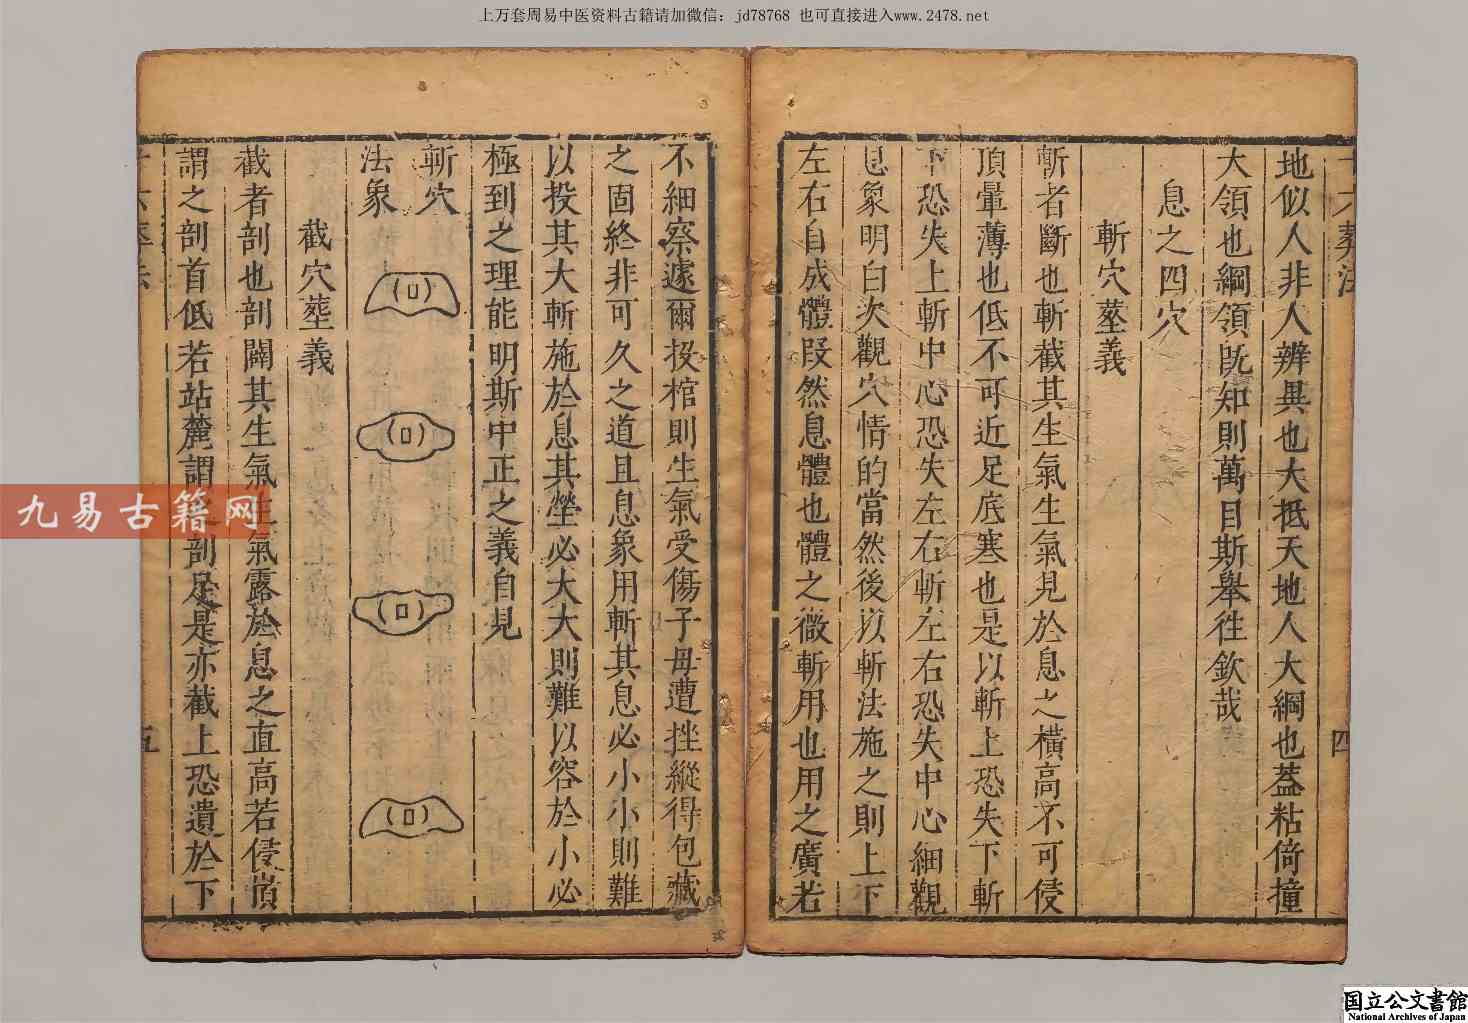 上万套周易中医资料古籍请加微信：jd78768 也可直接进入www.2478.net
四
地似人非人辨異也大抵天地人大綱也蓋粘倚撞
大領也綱領既知則萬目斯舉徃欽哉
息之四穴
斬穴塟義
斬者斷也斬截其生氣生氣見於息之橫高不可侵
頂暈薄也低不可近足底寒也是以斬上恐失下斬
下恐失上斬中心恐失左右斬左右恐失中心細觀
息象明白次觀穴情的當然後以斬法施之則上下
左右自成體段然息體也體之微斬用也用之廣若
不細察遽爾投棺則生氣受傷子母遭挫縱得包藏
之固終非可久之道且息象用斬其息必小小則難
以投其大斬施於息其塋必大大則難以容於小必
極到之理能明斯中正之義自見
斬穴
法象
截穴塟義
截者剖也剖闢其生氣生氣露於息之直高若侵嵿
謂之剖首低若站麓謂剖足是亦截上恐遺於下
五
九易古籍网
国立公文書館
National Archives of Japan